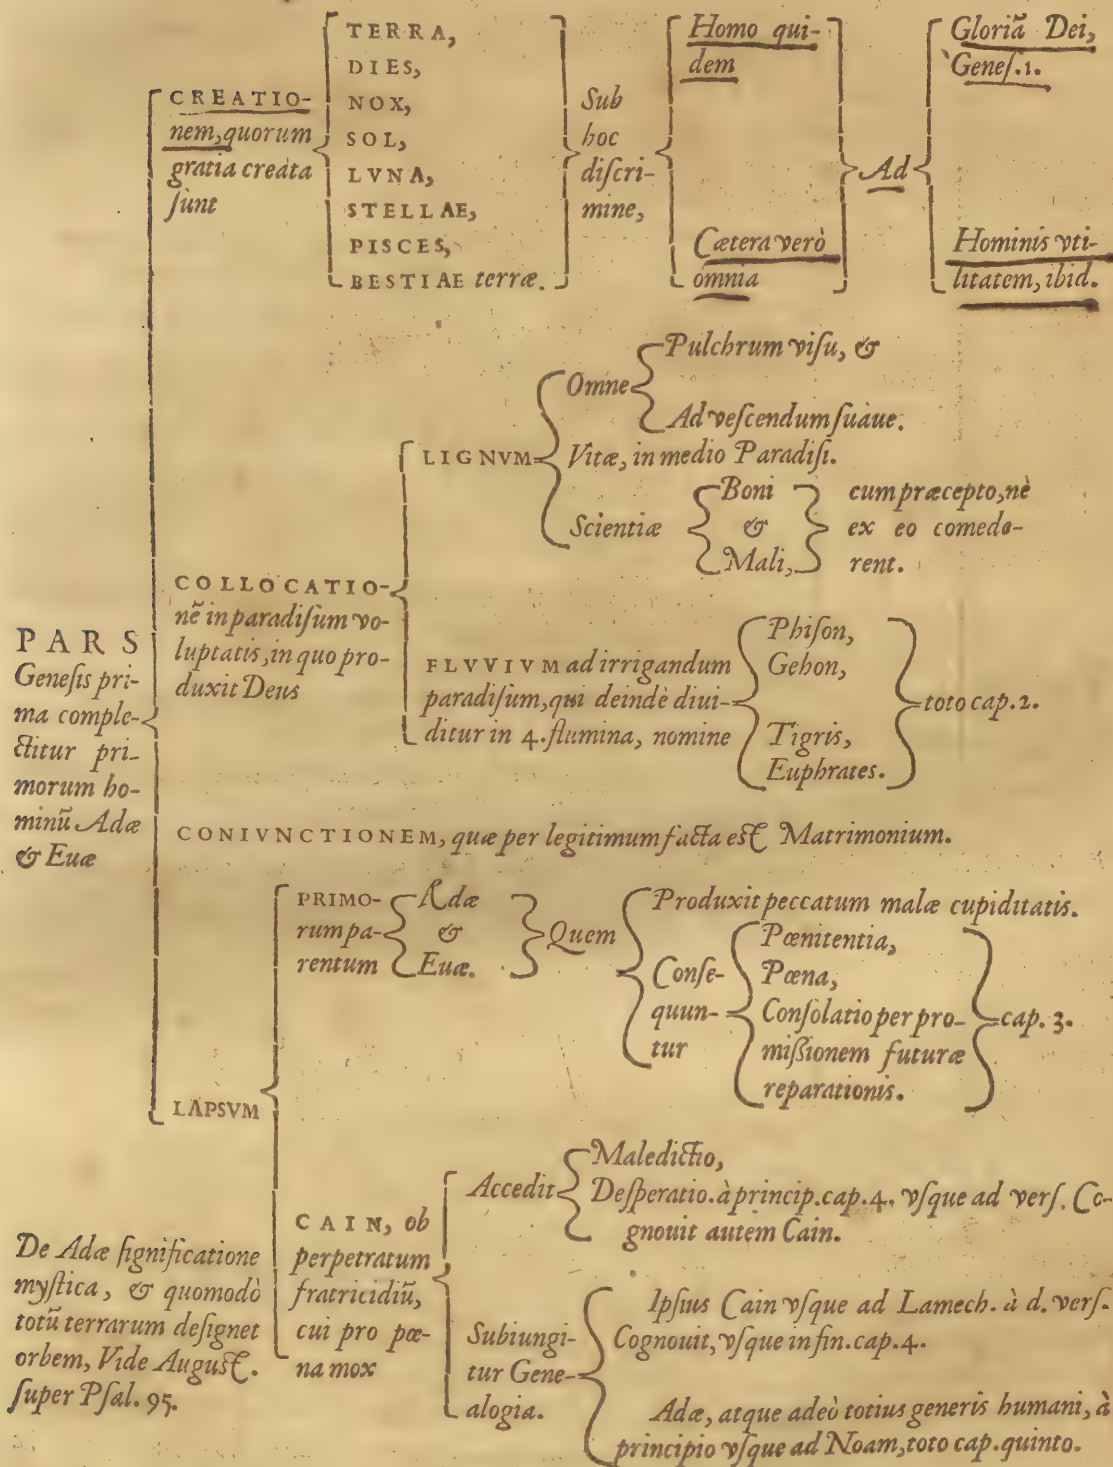 PARS
Geneſis pri-
ma comple-
ctitur pri-
morum ho-
minũ Adæ
& Euæ
CREATIO-
nem, quorum
gratia creata
ſunt
TERRA,
DIES,
NOX,
SOL,
LVNA,
STELLAE,
PISCES,
BESTIAE terræ.
Sub
hoc
diſcri-
mine,
Homo qui-
dem
Cætera verò
omnia
Ad
Gloriã Dei,
Geneſ.1.
Hominis vti-
litatem, ibid.
COLLOCATIO-
nẽ in paradiſum vo-
luptatis, in quo pro-
duxit Deus
LIGNVM
Omne
Pulchrum viſu, &
Ad veſcendum ſuaue.
Vitæ, in medio Paradiſi.
Scientiæ
Boni
&
Mali,
cum præcepto, nè
ex eo comede-
rent.
FLVVIVM ad irrigandum
paradiſum, qui deindè diui-
ditur in 4. flumina, nomine
Phiſon,
Gehon,
Tigris,
Euphrates.
toto cap. 2.
CONIVNCTIONEM, quæ per legitimum facta eſt Matrimonium.
LAPSVM
PRIMO-
rum pa-
rentum
Adæ
&
Euæ.
Quem
Produxit peccatum malæ cupiditatis.
Conſe-
quun-
tur
Pœnitentia,
Pœna,
Conſolatio per pro-
miſsionem futuræ
reparationis.
cap. 3.
CAIN, ob
perpetratum
fratricidiũ,
cui pro pœ-
na mox
Accedit
Maledictio,
Deſperatio. à princip. cap. 4. vſque ad verſ. Co-
gnouit autem Cain.
Subiungi-
tur Gene-
alogia.
Ipſius Cain vſque ad Lamech. à d. verſ.
Cognouit, vſque in fin. cap. 4.
Adæ, atque adeò totius generis humani, à
principio vſque ad Noam, toto cap. quinto.
De Adæ ſignificatione
myſtica, & quomodò
totũ terrarum deſignet
orbem, Vide Auguſt.
ſuper Pſal. 95.